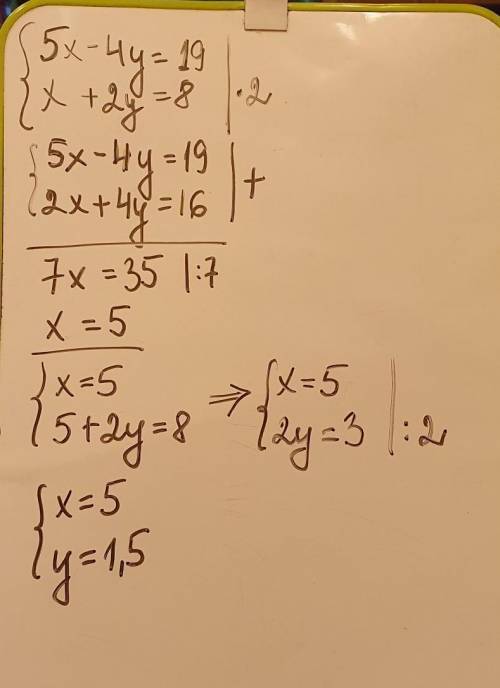 {5x-4y=19
{x+2y=8 |·2
{5x-4y=19
{2x+4y=16 |+
7x=35 |:7
x=5
{x=5
{5+2y=8
⇒ {x=5
{2y=3 |:2
{x=5
{y=1,5